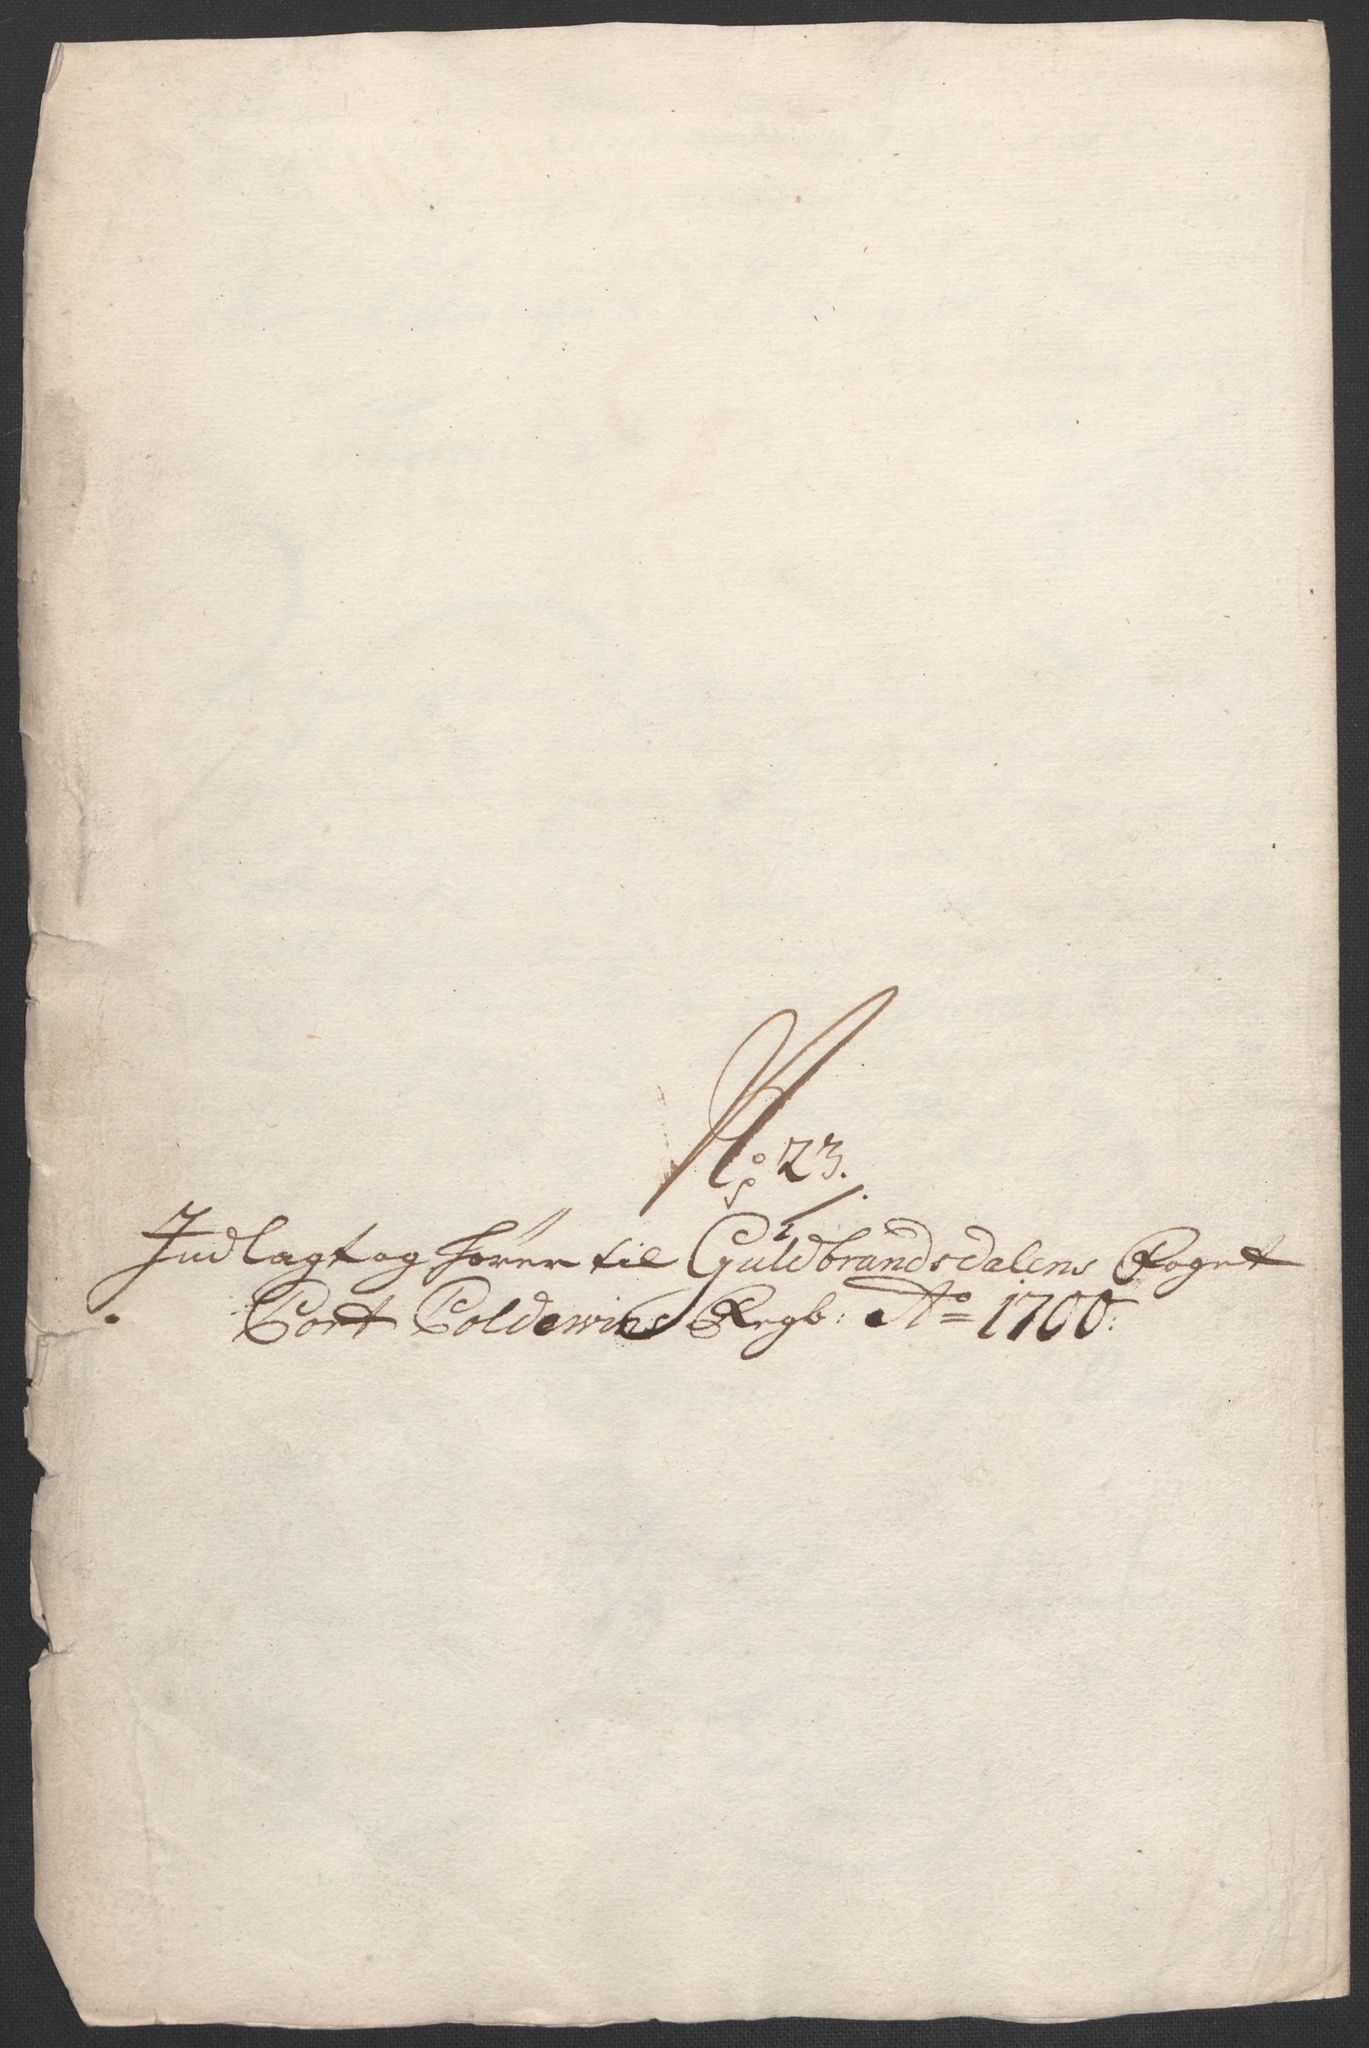 No: 23.
Indlagt og hører til Guldbrandsdalens Foget
Cort Coldewins Regb: Ao 1700: